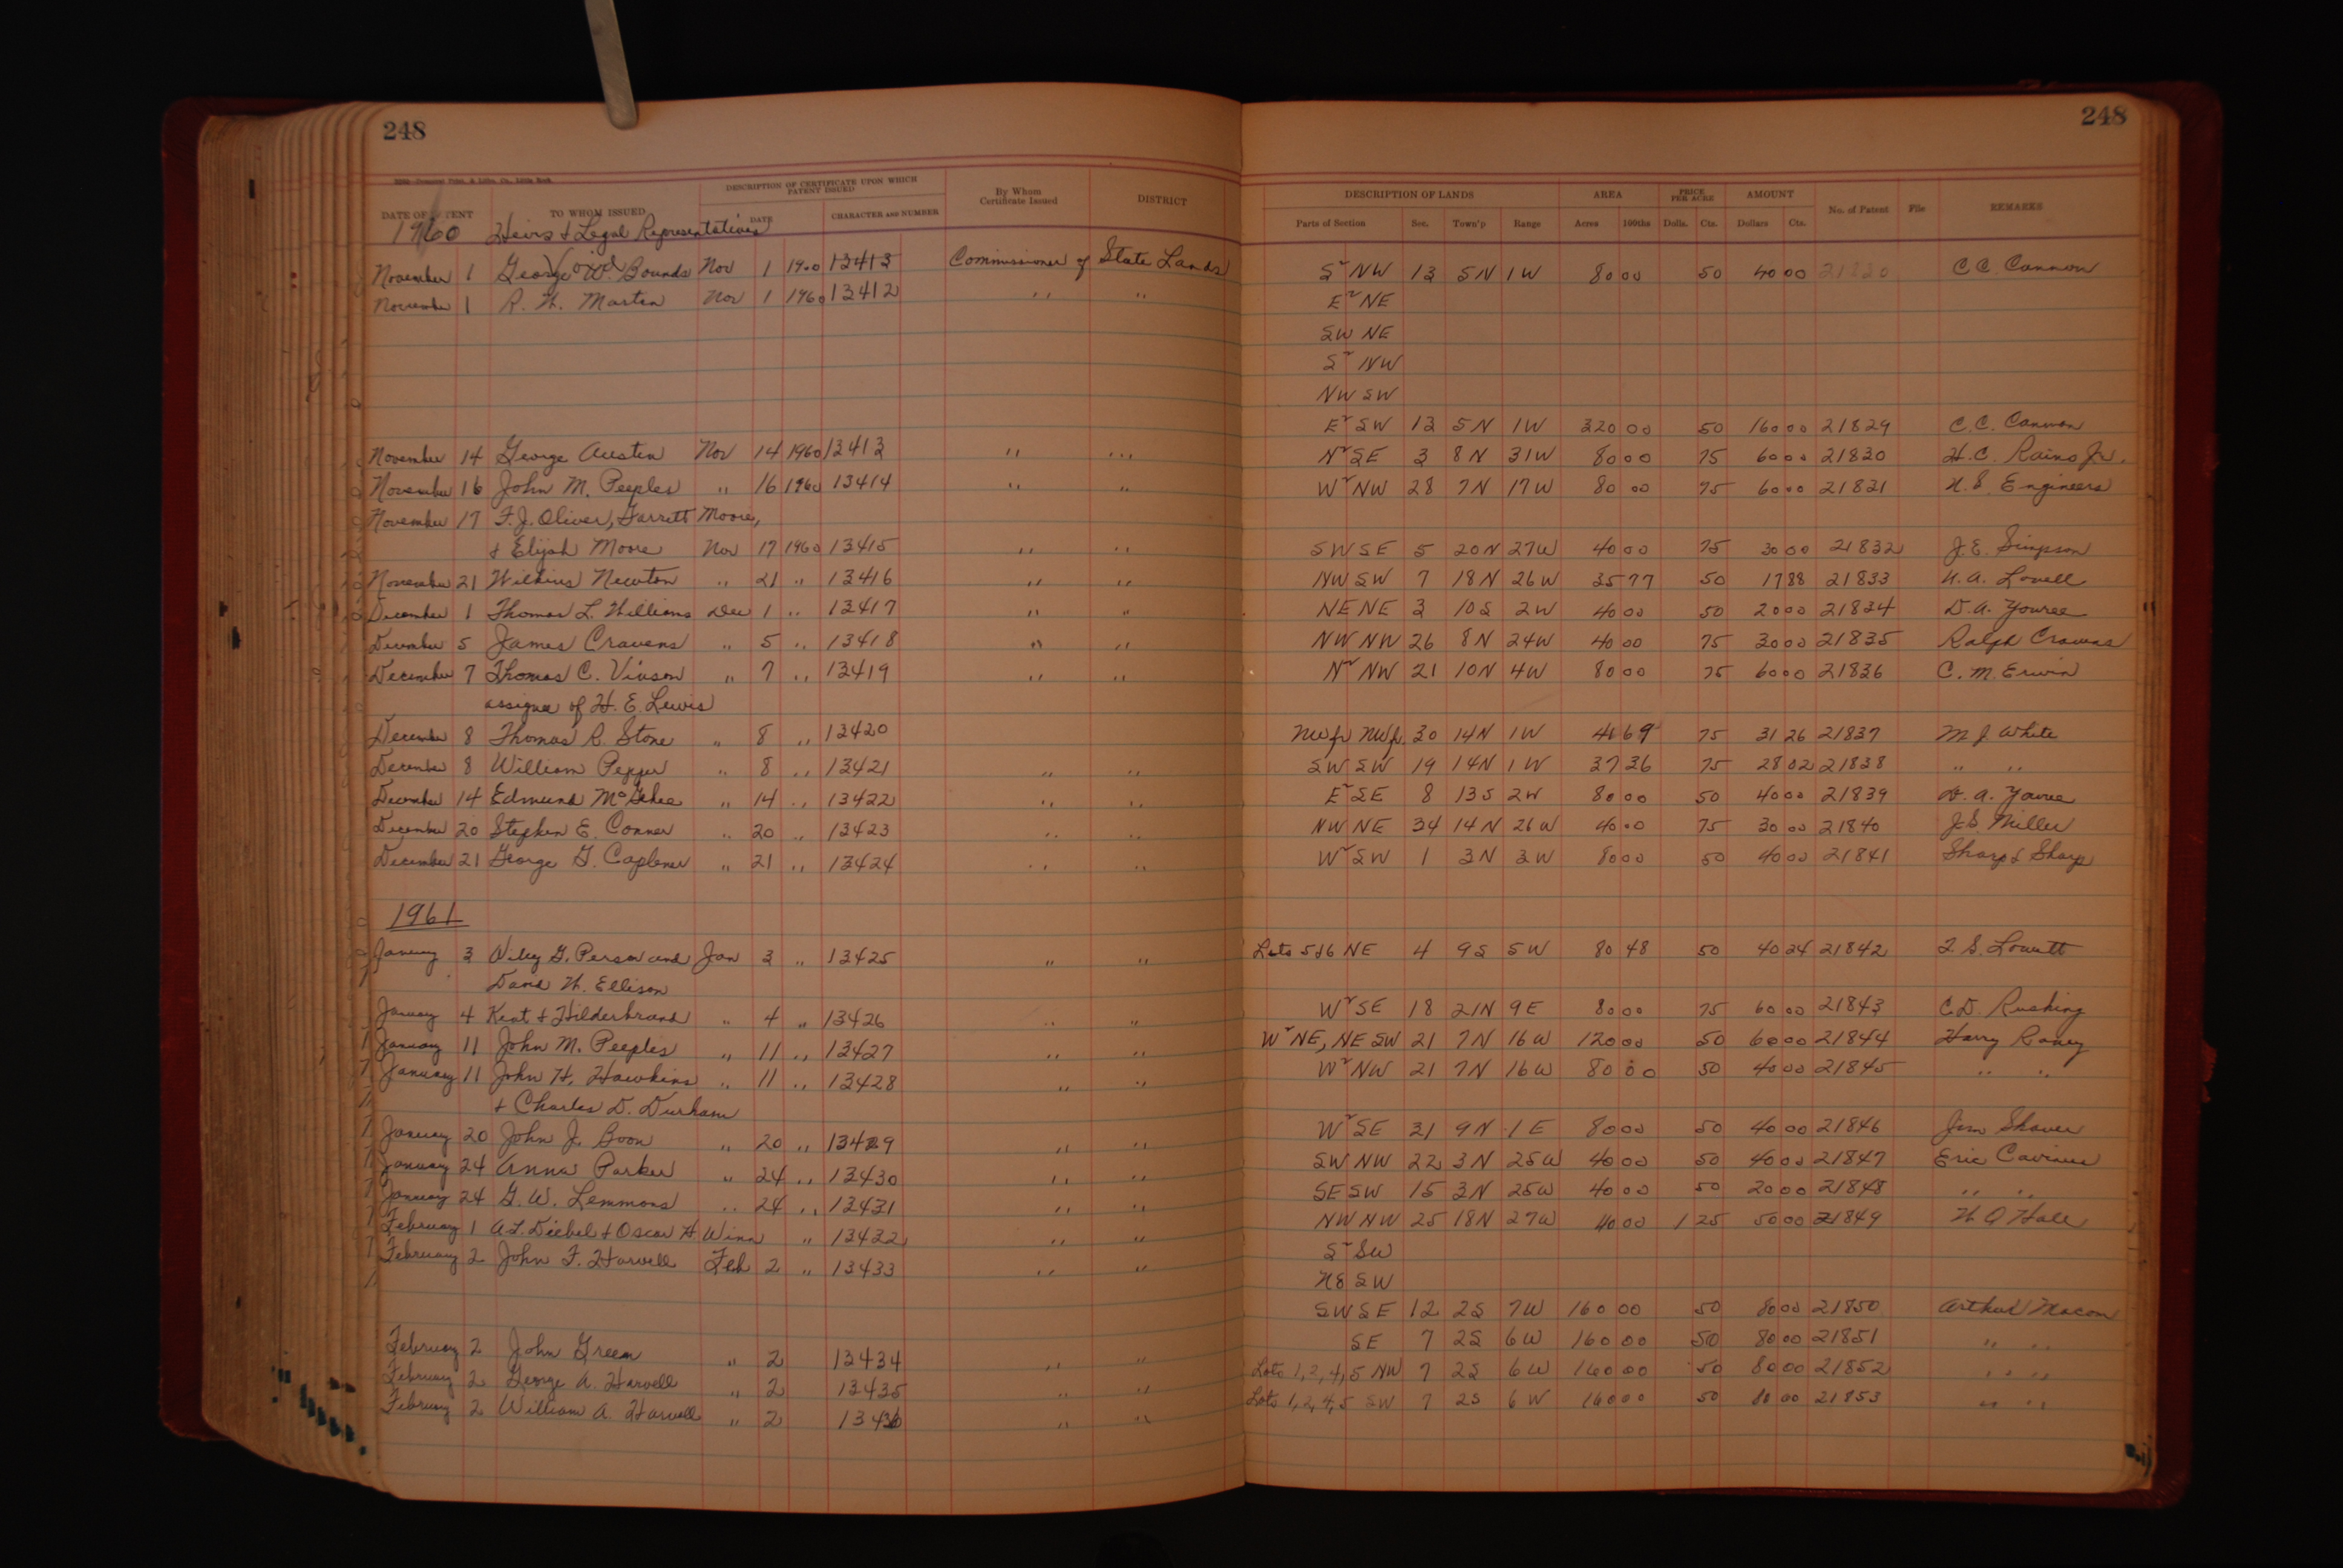 248
248
DATE OF PATENT TO WHOM ISSUED DESCRIPTION OF CERTIFICATE UPON WHICH PATENT ISSUED DATE CHARACTER AND NUMBER By Whom Certificate Issued DISTRICT DESCRIPTION OF LANDS Parts of Section Sec. Town'p Range AREA Acres 100ths PRICE PER ACRE Dolls. Cts. AMOUNT Dollars Cts. No. of Patent File REMARKS
1960 Heirs & Legal Representatives
November 1 George W. Bounds Void Nov 1 1960 13413 Commissioner of State Lands S² NW 13 5N 1W 80 00 50 40 00 21830 C.C. Cannon
November 1 R. H. Martin Nov 1 1960 13412 " " E² NE
SW NE
S² NW
NW SW
E² SW 13 5N 1W 320 00 50 160 00 21829 C.C. Cannon
November 14 George Austin Nov 14 1960 13413 " " N² SE 3 8N 31W 80 00 75 60 00 21830 H.C. Rains Jr.
November 16 John M. Peeples " 16 1960 13414 " " W² NW 28 7N 17W 80 00 75 60 00 21831 U.S. Engineers
November 17 F. J. Oliver, Garrett Moore,
& Elijah Moore Nov 17 1960 13415 " " SW SE 5 20N 27W 40 00 75 30 00 21832 J.E. Simpson
November 21 Wilkins Newton " 21 " 13416 " " NW SW 7 18N 26W 35 77 50 17 88 21833 Lovell
December 1 Thomas L. Williams Dec 1 " 13417 " " NE NE 3 10S 2W 40 00 50 20 00 21834 D.A. Youree
December 5 James Cravens " 5 " 13418 " " NW NW 26 8N 24W 40 00 75 30 00 21835 Ralph Cravens
December 7 Thomas C. Vinson " 7 " 13419 " " N² NW 21 10N 4W 80 00 75 60 00 21836 C. M. Erwin
assignee of H. E. Lewis
December 8 Thomas R. Stone " 8 " 13420 NW fr NW fr. 30 14N 1W 41 69 75 31 26 21837 M J White
December 8 William Pepper " 8 " 13421 " " SW SW 19 14N 1W 37 36 75 28 02 21838 " "
December 14 Edmund McGehee " 14 " 13422 " " E² SE 8 13S 2W 80 00 50 40 00 21839 D. A. Youree
December 20 Stephen E. Conner " 20 " 13423 " " NW NE 34 14N 26W 40 00 75 30 00 21840 J.S. Miller
December 21 George G. Caplener " 21 " 13424 " " W² SW 1 3N 3W 80 00 50 40 00 21841 Sharp & Sharp
1961
January 3 Wiley G. Person and Jan 3 " 13425 " " Lots 5&6 NE 4 9S 5W 80 48 50 40 24 21842
David H. Ellison
January 4 Kent & Hilderbrand " 4 " 13426 " " W² SE 18 21N 9E 80 00 75 60 00 21843 C.D. Rushing
January 11 John M. Peeples " 11 " 13427 " " W² NE, NE SW 21 7N 16W 120 00 50 60 00 21844 Harry Raney
January 11 John H. Hawkins " 11 " 13428 " " W² NW 21 7N 16W 80 00 50 40 00 21845 " "
& Charles D. Durham
January 20 John J. Boon " 20 " 13429 " " W² SE 31 9N 1E 80 00 50 40 00 21846 Jim Shaver
January 24 Anna Parker " 24 " 13430 " " SW NW 22 3N 25W 40 00 50 40 00 21847 Eric
January 24 G. W. Lemmons " 24 " 13431 " " SE SW 15 3N 25W 40 00 50 20 00 21848 " "
February 1 A.L. Diebel & Oscar H. Winn " 13432 " " NW NW 25 18N 27W 40 00 1 25 50 00 21849 Hall
February 2 John F. Harvell Feb 2 " 13433 " " S² SW
NE SW
SW SE 12 2S 7W 160 00 50 80 00 21850 Arthur Macom
February 2 John Green " 2 13434 " " SE 7 2S 6W 160 00 50 80 00 21851 " "
February 2 George A. Harvell " 2 13435 " " Lots 1,2,4,5 NW 7 2S 6W 160 00 50 80 00 21852 " "
February 2 William A. Harvell " 2 13436 " " Lots 1,2,4,5 SW 7 2S 6W 160 00 50 80 00 21853 " "